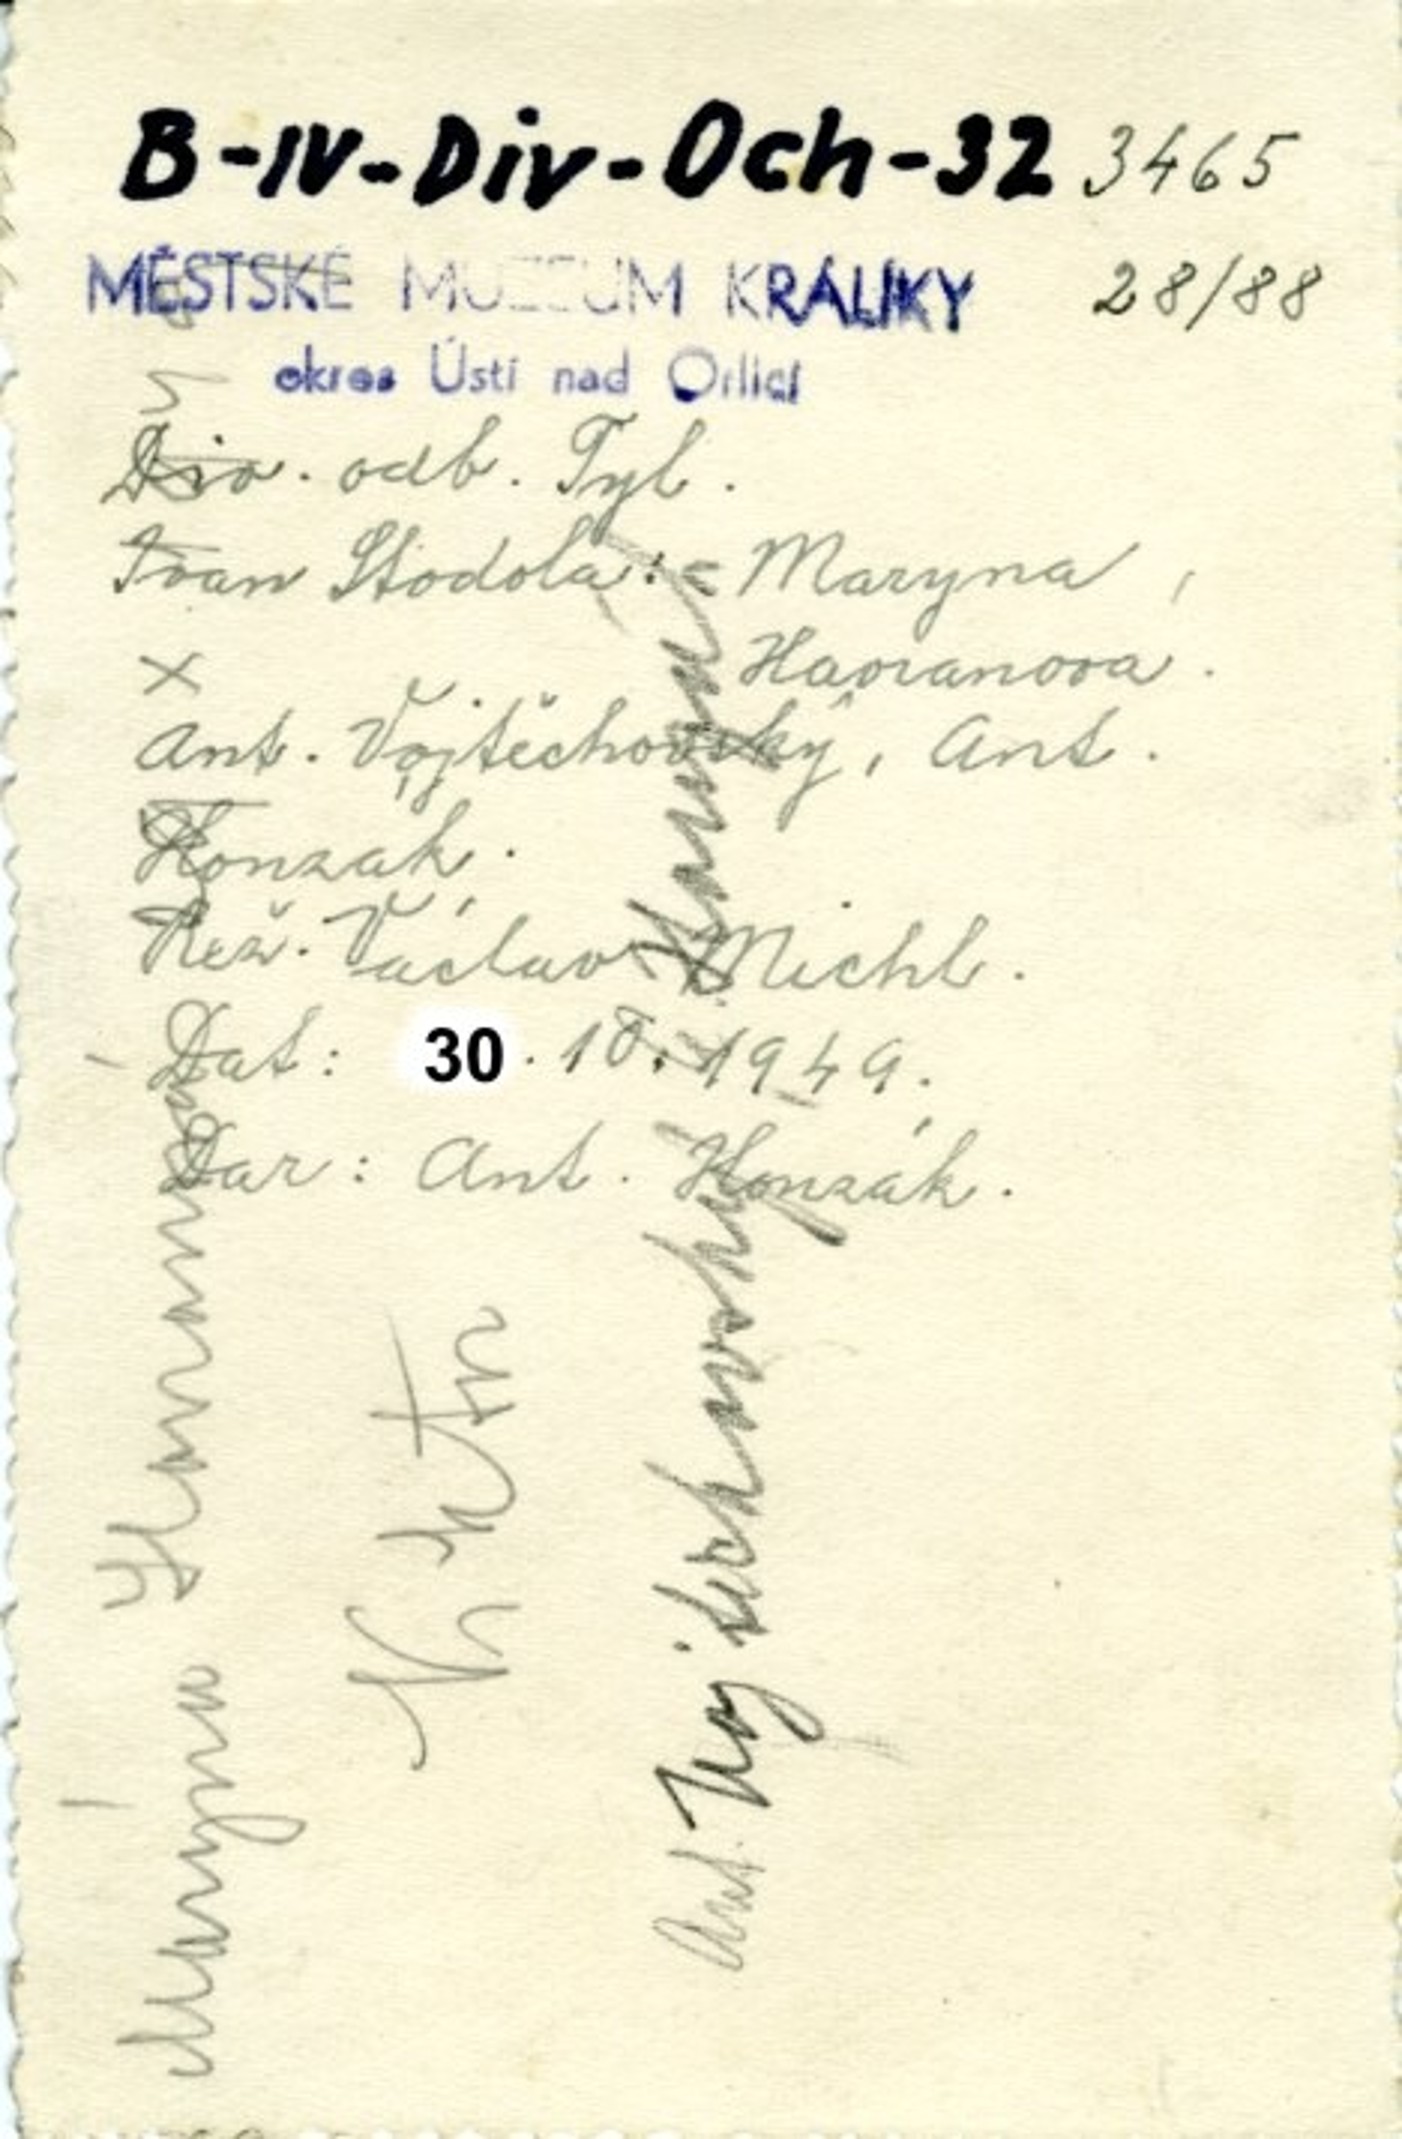 B-IV-Div-Och-32 3465
MĚSTSKÉ MUZEUM KRÁLÍKY 28/88
okres Ústí nad Orlicí
Div. odb. Tyl.
Ivan Stodola: Maryna,
Havranova.
x
Ant. Vojtěchovský, Ant.
Honzák.
Rež. Václav Michl.
Dat: 30. 10. 1949.
Dar: Ant. Honzák.
Maryna
Ant. Vojtěchovský